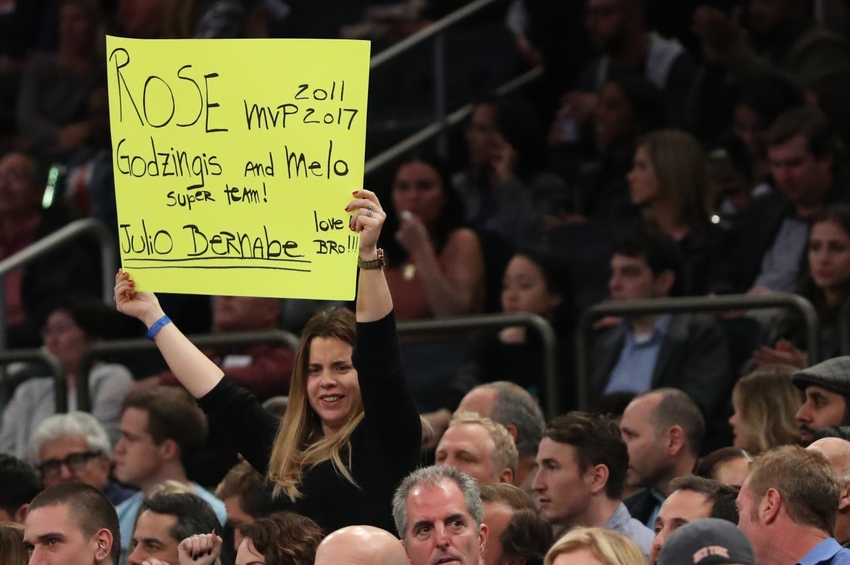 ROSE MVP 2011
2017
Godzingis and Melo
super team!
Julio Bernabe love
BRO!!!